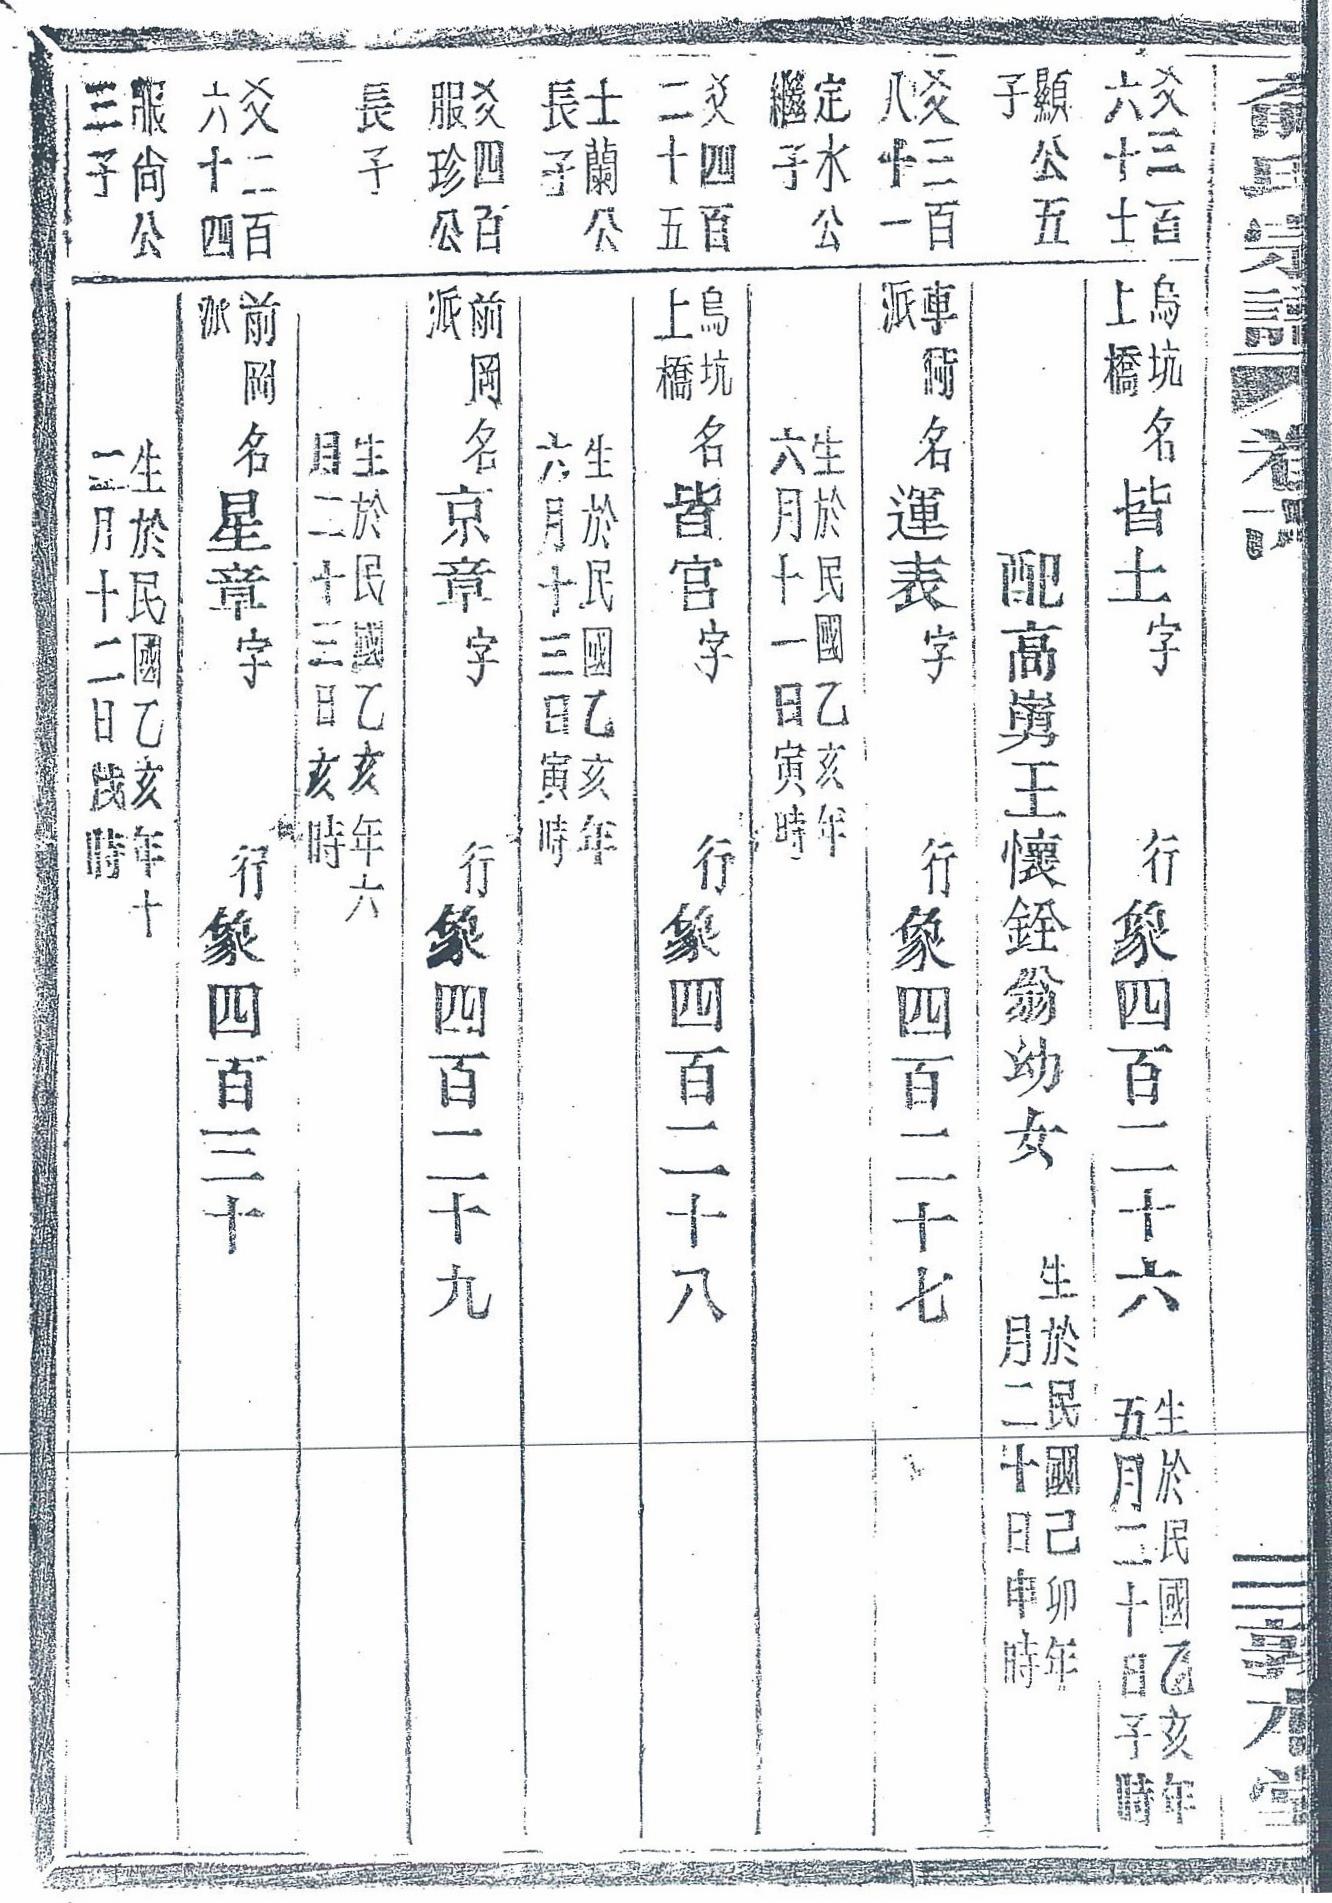 爻三百
六十士
顯公五
子
烏坑
上橋
名皆土字
行象四百二十六
生於民國乙亥年
五月二十日子時
配高嶴王懷銓翁幼女
生於民國己卯年
月二十日申時
爻三百
八十一
定水公
繼子
車衕
派
名運表字
行象四百二十七
生於民國乙亥年
六月十一日寅時
爻四百
二十五
士蘭公
長子
烏坑
上橋
名皆官字
行象四百二十八
生於民國乙亥年
六月十三日寅時
爻四百
服珍公
長子
前岡
派
名京章字
行象四百二十九
生於民國乙亥年六
月二十三日亥時
爻二百
六十四
服尙公
三子
前岡
派
名星章字
行象四百三十
生於民國乙亥年十
二月十二日戌時
氏宗譜
卷
本堂